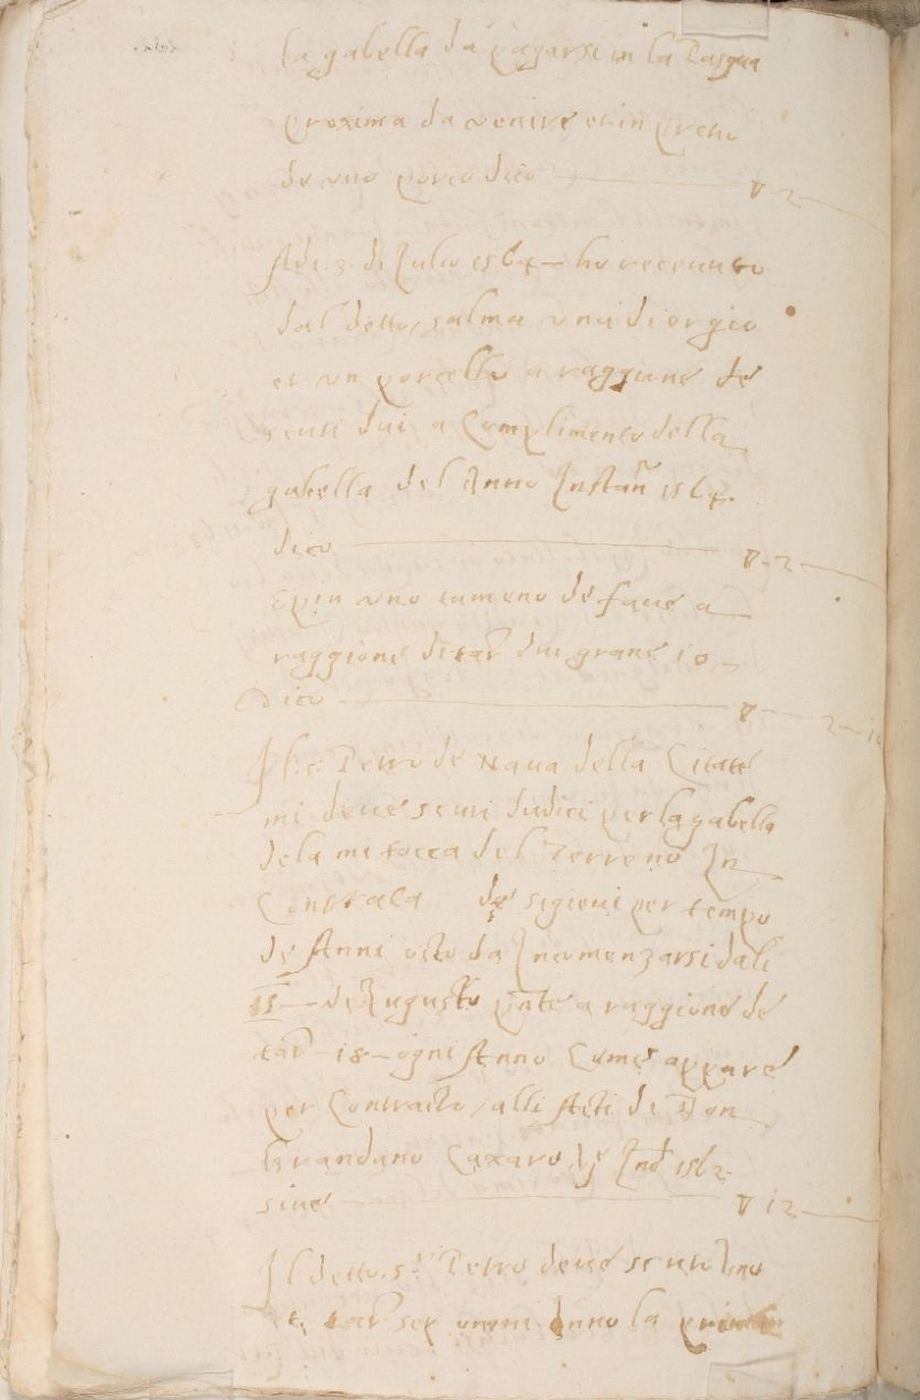 la gabella da pagarsi in la Pasqua
proxima da venire et in preno
de uno porco dico — ∇ — 2 —
Adi. 3. di Julio 1564 — ho receputo
dal detto, salma una di orgio
et un porcello a raggione de
scuti dui a Complimento della
gabella del Anno Instan̄ 1564.
dico — ∇ - 2 —
E piu uno tumeno de fave a
raggione di tar̄ dui grane 10 —
dico — ∇ — 2 — 10
Il s. Petro de Nava della Citate
mi deve scuti dudici per la gabella
dela mi tocca del Terreno In
Contrata de sigieui per tempo
de Anni octo da Incomenzarsi dali
15 — de Augusto pn̄te a raggione de
tar̄ — 18 — ogni Anno Come appare
per Contracto, alli Acti de Don
Brandano Caxaro Ind. 1562.
sive — ∇ 12 —
Il detto s.r Petro deve scuto uno
et tar̄ sey omni Anno la